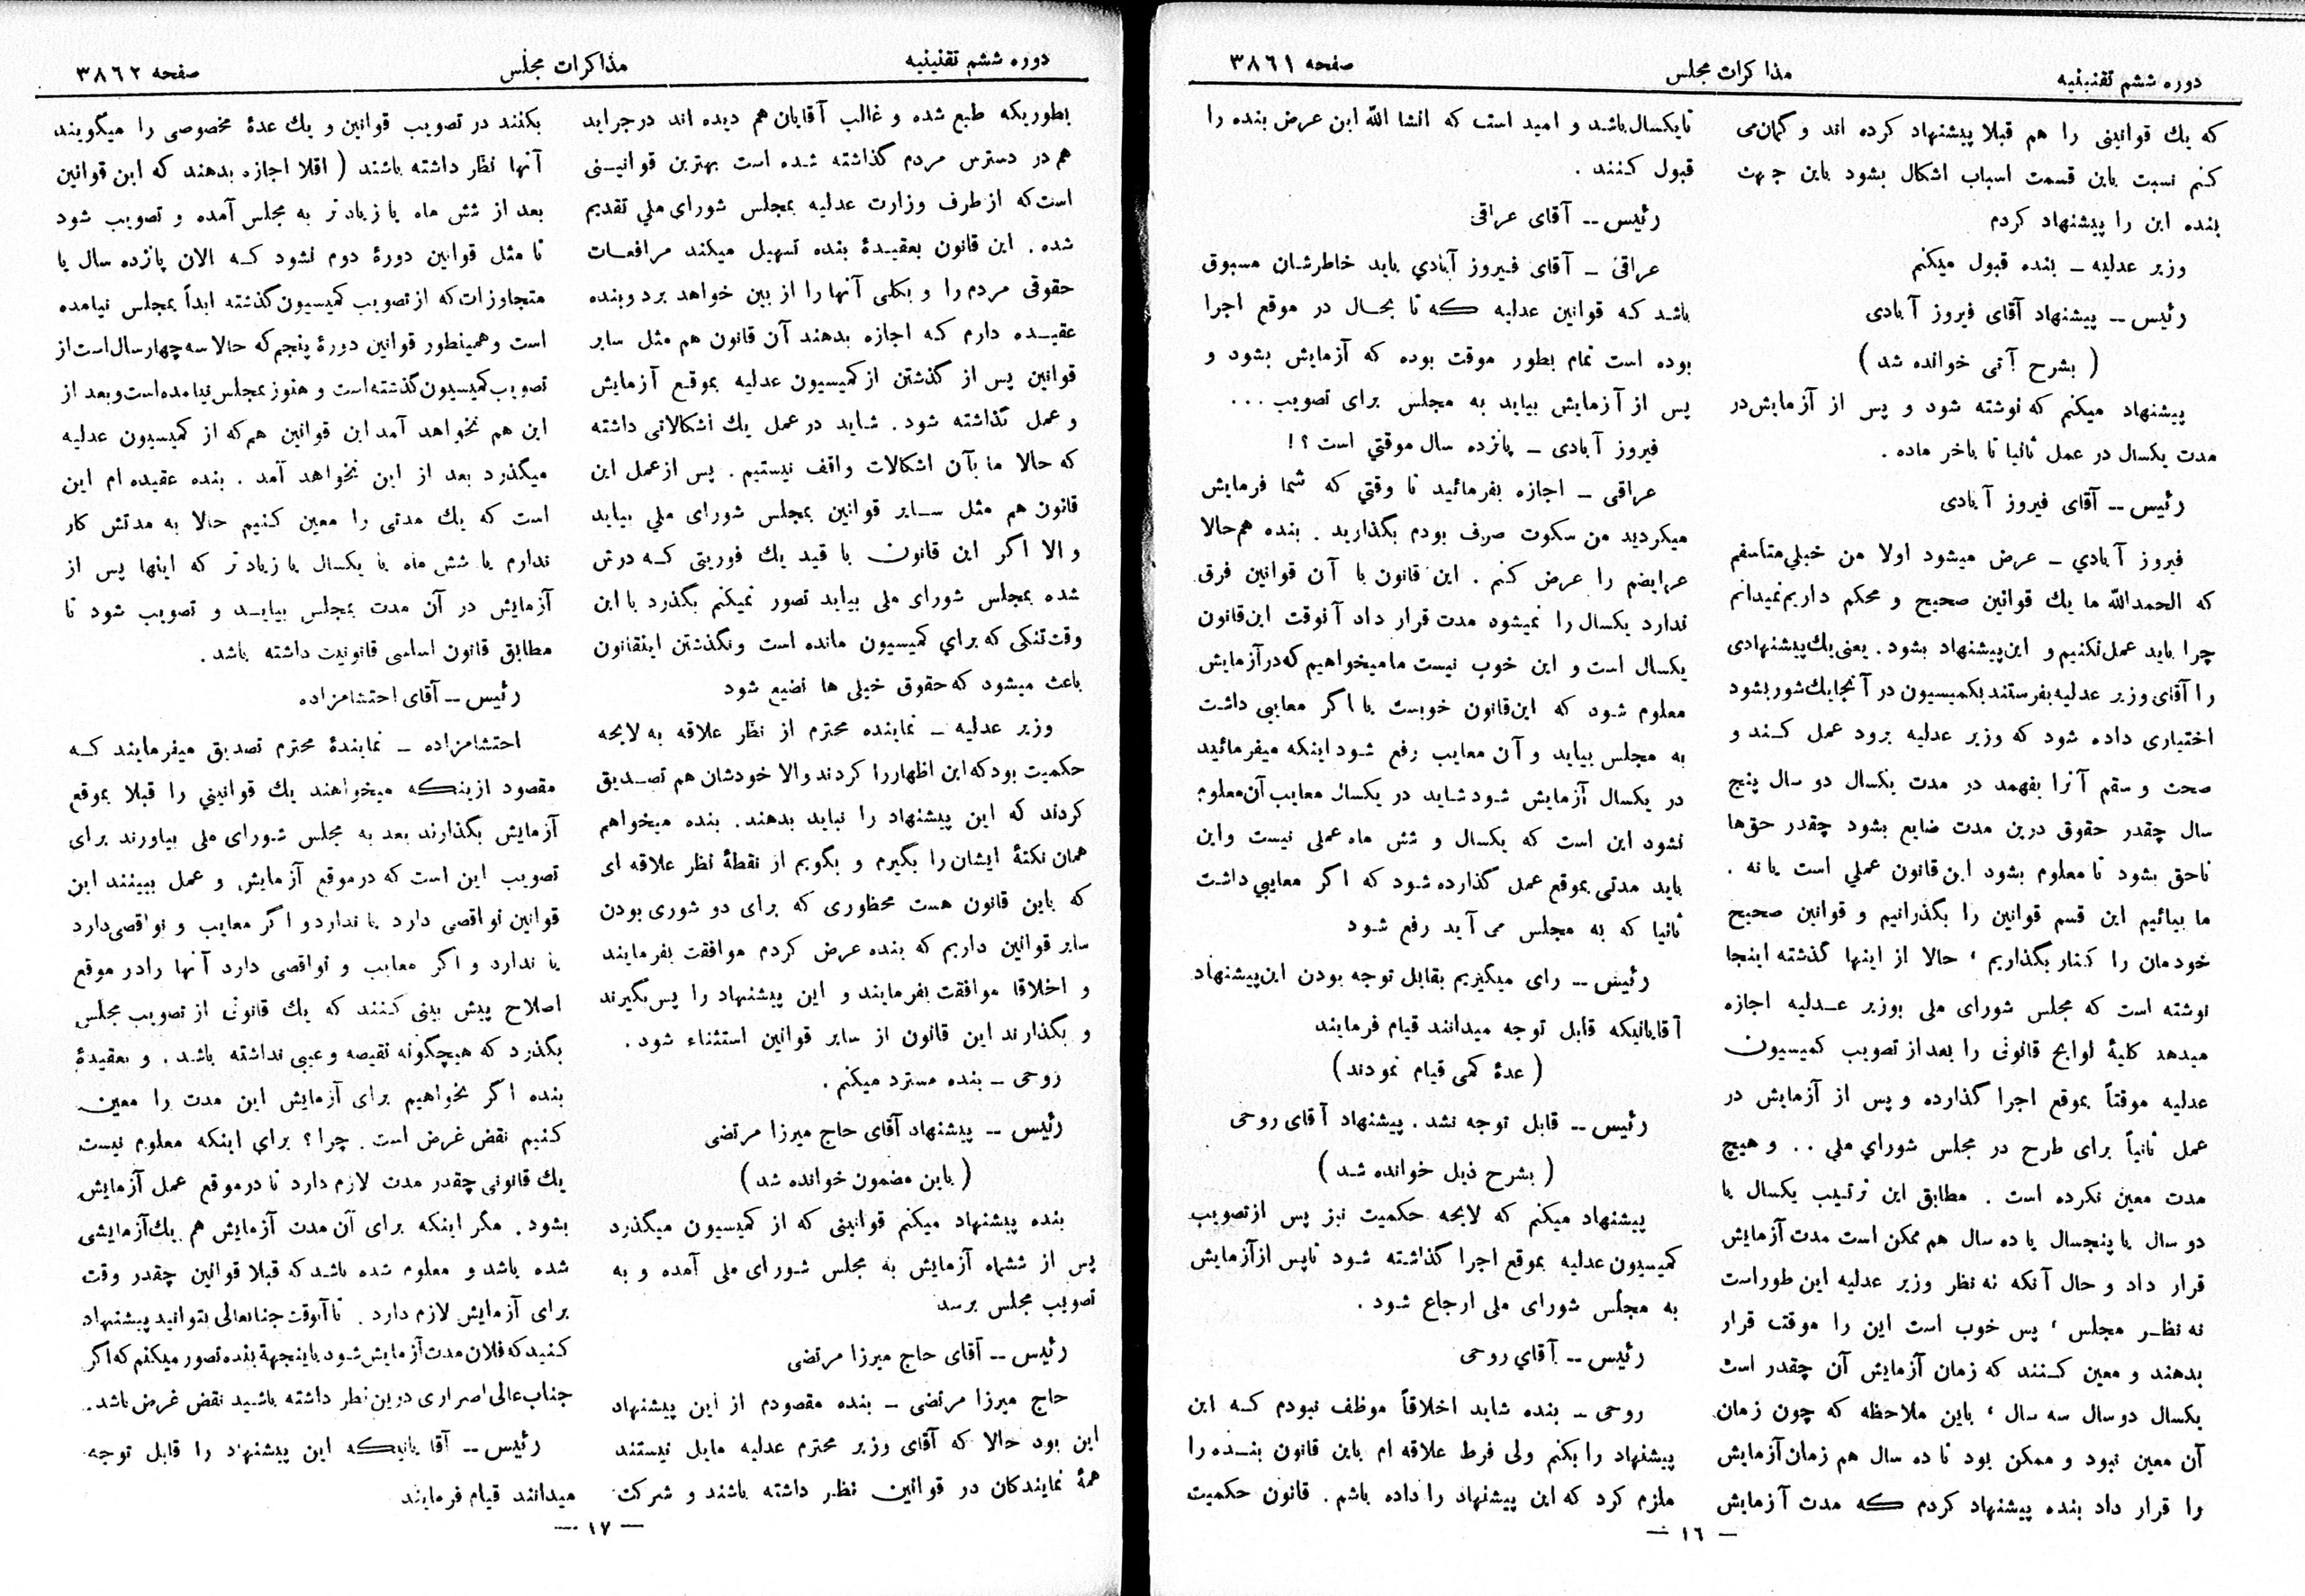 دوره ششم تقنینیه
مذاکرات مجلس
صفحه ۳۸۶۱
که یك قوانینی را هم قبلا پیشنهاد کرده اند و گمان‌می
کنم نسبت باین قسمت اسباب اشکال بشود باین جهت
بنده این را پیشنهاد کردم
وزیر عدلیه ـ بنده قبول میکنم
رئیس ــ پیشنهاد آقای فیروز آبادی
( بشرح آتی خوانده شد )
پیشنهاد میکنم که نوشته شود و پس از آزمایش‌در
مدت یکسال در عمل ثانیا تا باخر ماده .
رئیس ــ آقای فیروز آبادی
فیروز آبادي ـ عرض میشود اولا من خیلي‌متأسفم
که الحمدالله ما یك قوانین صحیح و محکم داریم‌نمیدانم
چرا باید عمل‌نکنیم و این‌پیشنهاد بشود . یعنی‌یك‌پیشنهادی
را آقای وزیر عدلیه‌بفرستند بکمیسیون در آنجایك‌شور بشود
اختیاری داده شود که وزیر عدلیه برود عمل کـند و
صحت و سقم آنرا بفهمد در مدت یکسال دو سال پنج
سال چقدر حقوق درین مدت ضایع بشود چقدر حق‌ها
ناحق بشود تا معلوم بشود این قانون عملي است یا نه .
ما بیائیم این قسم قوانین را بگذرانیم و قوانین صحیح
خودمان را کنار بگذاریم ، حالا از اینها گذشته اینجا
نوشته است که مجلس شورای ملی بوزیر عـدلیه اجازه
میدهد کلیهٔ لوایح قانونی را بعد از تصویب کمیسیون
عدلیه موقتاً بموقع اجرا گذارده و پس از آزمایش در
عمل ثانیاً برای طرح در مجلس شورای ملي . . و هیچ
مدت معین نکرده است . مطابق این ترتیب یکسال یا
دو سال یا پنجسال یا ده سال هم ممکن است مدت آزمایش
قرار داد و حال آنکه نه نظر وزیر عدلیه این طوراست
نه نظـر مجلس ، پس خوب است این را موقت قرار
بدهند و معین کـنند که زمان آزمایش آن چقدر است
یکسال دوسال سه سال ، باین ملاحظه که چون زمان
آن معین نبود و ممکن بود تا ده سال هم زمان‌آزمایش
را قرار داد بنده پیشنهاد کردم که مدت آزمایش
تایکسال‌باشد و امید است که انشا الله این عرض بنده را
قبول کنند .
رئیس ــ آقای عراقی
عراقی ـ آقای فیروز آبادي باید خاطرشان مسبوق
باشد که قوانین عدلیه که تا بحـال در موقع اجرا
بوده است تمام بطور موقت بوده که آزمایش بشود و
پس از آزمایش بیاید به مجلس برای تصویب ...
فیروز آبادی ـ پانزده سال موقتي است ؟ !
عراقی ـ اجازه بفرمائید تا وقتي که شما فرمایش
میکردید من سکوت صرف بودم بگذارید . بنده هم‌حالا
عرایضم را عرض کنم . این قانون با آن قوانین فرق
ندارد یکسال را نمیشود مدت قرار داد آنوقت این‌قانون
یکسال است و این خوب نیست مامیخواهیم که‌درآزمایش
معلوم شود که این‌قانون خوبست یا اگر معایبی داشت
به مجلس بیاید و آن معایب رفع شود اینکه میفرمائید
در یکسال آزمایش شود شاید در یکسال معایب آن‌معلوم
نشود این است که یکسال و شش ماه عملی نیست واین
باید مدتی بموقع عمل گذارده شود که اگر معایبي داشت
ثانیا که به مجلس می آید رفع شود
رئیس ــ رای میگیریم بقابل توجه بودن این‌پیشنهاد
آقایانیکه قابل توجه میدانند قیام فرمایند
( عدهٔ کمی قیام نمودند )
رئیس ــ قابل توجه نشد . پیشنهاد آقای روحی
( بشرح ذیل خوانده شد )
پیشنهاد میکنم که لایحه حکمیت نیز پس ازتصویب
کمیسیون عدلیه بموقع اجرا گذاشته شود تاپس ازآزمایش
به مجلس شورای ملی ارجاع شود .
رئیس ــ آقاي روحی
روحی ـ بنده شاید اخلاقاً موظف نبودم کـه این
پیشنهاد را بکنم ولی فرط علاقه ام باین قانون بنـده را
ملزم کرد که این پیشنهاد را داده باشم . قانون حکمیت
— ۱٦ —
دوره ششم تقنینیه
مذاکرات مجلس
صفحه ۳۸٦۲
بطوریکه طبع شده و غالب آقایان هم دیده اند درجراید
هم در دسترس مردم گذاشته شده است بهترین قوانیـنی
است‌که از طرف وزارت عدلیه بمجلس شورای ملي تقدیم
شده . این قانون بعقیـدهٔ بنده تسهیل میکند مرافعـات
حقوقی مردم را و بکلی آنها را از بین خواهد برد وبنده
عقیـده دارم کـه اجازه بدهند آن قانون هم مثل سایر
قوانین پس از گذشتن از کمیسیون عدلیه بموقـع آزمایش
و عمل گذاشته شود . شاید در عمل یك اشکالاتی داشته
که حالا ما بآن اشکالات واقف نیستیم . پس از عمل این
قانون هم مثل سـایر قوانین بمجلس شورای ملي بیاید
والا اگر این قانون با قید یك فوریتی کـه درش
شده بمجلس شورای ملی بیاید تصور نمیکنم بگذرد با این
وقت‌تنگی که براي کمیسیون مانده است ونگذشتن اینقانون
باعث میشود که حقوق خیلی ها تضیع شود
وزیر عدلیه ـ نماینده محترم از نظر علاقه به لایحه
حکمیت بود که‌این اظهاررا کردند والا خودشان هم تصـدیق
کردند که این پیشنهاد را نباید بدهند . بنده میخواهم
همان نکتهٔ ایشان را بگیرم و بگویم از نقطهٔ نظر علاقه ای
که باین قانون هست محظوری که برای دو شوری بودن
سایر قوانین داریم که بنده عرض کردم موافقت بفرمایند
و اخلاقا موافقت بفرمایند و این پیشنهاد را پس‌بگیرند
و بگذارند این قانون از سایر قوانین استثناء شود .
روحی ـ بنده مسترد میکنم .
رئیس ــ پیشنهاد آقای حاج میرزا مرتضی
( باین مضمون خوانده شد )
بنده پیشنهاد میکنم قوانینی که از کمیسیون میگذرد
پس از ششماه آزمایش به مجلس شورای ملی آمده و به
تصویب مجلس برسد
رئیس ــ آقای حاج میرزا مرتضی
حاج میرزا مرتضی ـ بنده مقصودم از این پیشنهاد
این بود حالا که آقای وزیر محترم عدلیه مایل نیستند
همهٔ نمایندگان در قوانین نظر داشته باشند و شرکت
بکنند در تصویب قوانین و یك عدهٔ مخصوصی را میگویند
آنها نظر داشته باشند ( اقلا اجازه بدهند که این قوانین
بعد از شش ماه یا زیادتر به مجلس آمده و تصویب شود
تا مثل قوانین دورهٔ دوم نشود کـه الان پانزده سال یا
متجاوزات‌که از تصویب کمیسیون گذشته ابداً بمجلس نیامده
است و همینطور قوانین دورهٔ پنجم‌که حالا سه چهارسال‌است از
تصویب کمیسیون گذشته‌است و هنوز بمجلس نیامده‌است‌و بعد از
این هم نخواهد آمد این قوانین هم‌که از کمیسیون عدلیه
میگذرد بعد از این نخواهد آمد . بنده عقیده ام این
است که یك مدتی را معین کـنیم حالا به مدتش کار
ندارم یا شش ماه یا یکسال یا زیادتر که اینها پس از
آزمایش در آن مدت بمجلس بیایـد و تصویب شود تا
مطابق قانون اساسی قانونیت داشته باشد .
رئیس ــ آقای احتشامزاده
احتشامزاده ـ نمایندهٔ محترم تصدیق میفرمایند کـه
مقصود ازینکه میخواهند یك قوانیني را قبلا بموقع
آزمایش بگذارند بعد به مجلس شورای ملی بیاورند برای
تصویب این است که درموقع آزمایش و عمل ببینند این
قوانین نواقصی دارد یا ندارد و اگر معایب و نواقصی‌دارد
یا ندارد و اگر معایب و نواقصی دارد آنها رادر موقع
اصلاح پیش بینی کـنند که یك قانونی از تصویب مجلس
بگذرد که هیچگونه نقیصه و عیبی نداشته باشد . و بعقیدهٔ
بنده اگر بخواهیم برای آزمایش این مدت را معین
کنیم نقض غرض است . چرا ؟ براي اینکه معلوم نیست
یك قانونی چقدر مدت لازم دارد تا در موقع عمل آزمایش
بشود . مگر اینکه برای آن مدت آزمایش هم یك‌آزمایشی
شده باشد و معلوم شده باشد که قبلا قوانین چقدر وقت
برای آزمایش لازم دارد . تا آنوقت جنابعالی بتوانید پیشنهاد
کـنید که فلان مدت آزمایش شود باینجهة بنده تصور میکنم که اگر
جناب‌عالی اصراری درین نظر داشته باشید نقض غرض باشد .
رئیس ــ آقا یانیکه این پیشنهاد را قابل توجه
میدانند قیام فرمایند
— ۱۷ —